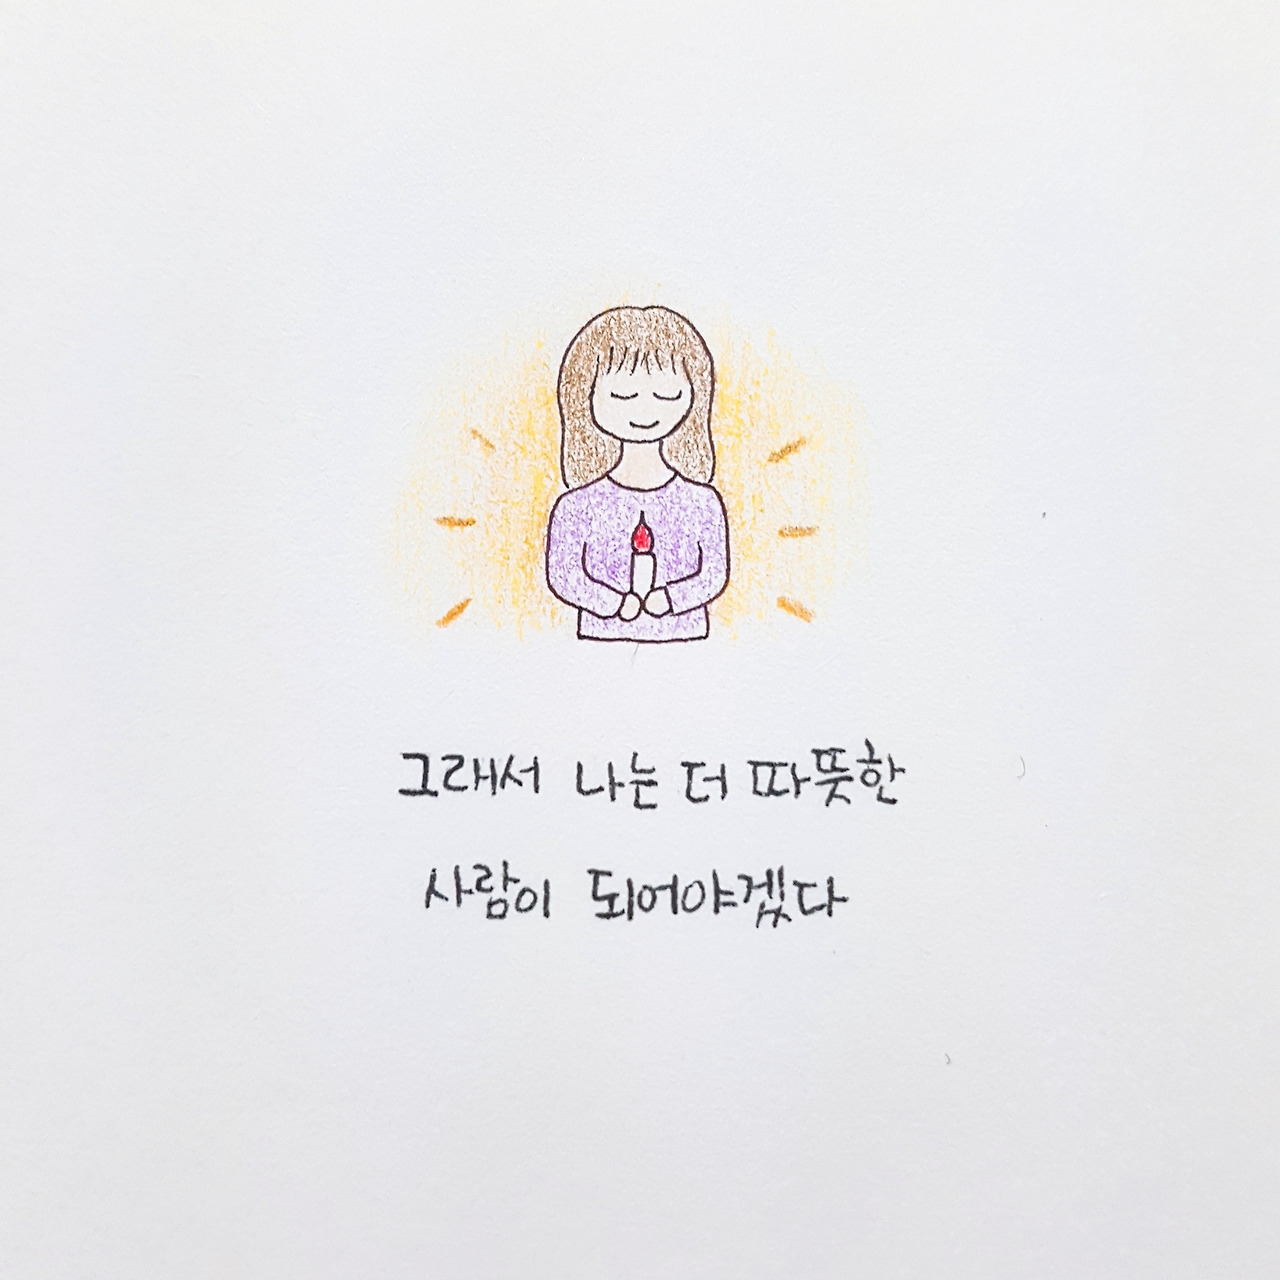 그래서 나는 더 따뜻한
사람이 되어야겠다